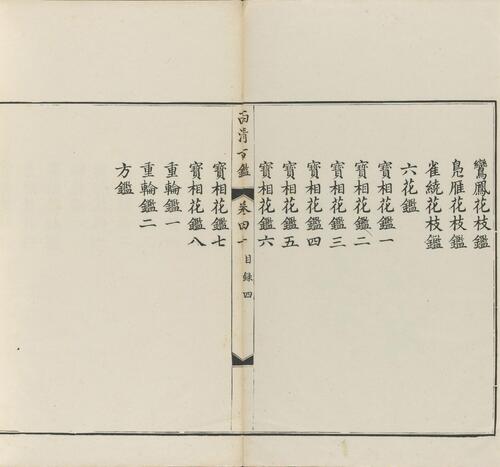 鸞鳳花枝鑑
鳧雁花枝鑑
雀繞花枝鑑
六花鑑
寶相花鑑一
寶相花鑑二
寶相花鑑三
寶相花鑑四
寶相花鑑五
寶相花鑑六
西清古鑑
卷四十 目録四
寶相花鑑七
寶相花鑑八
重輪鑑一
重輪鑑二
方鑑